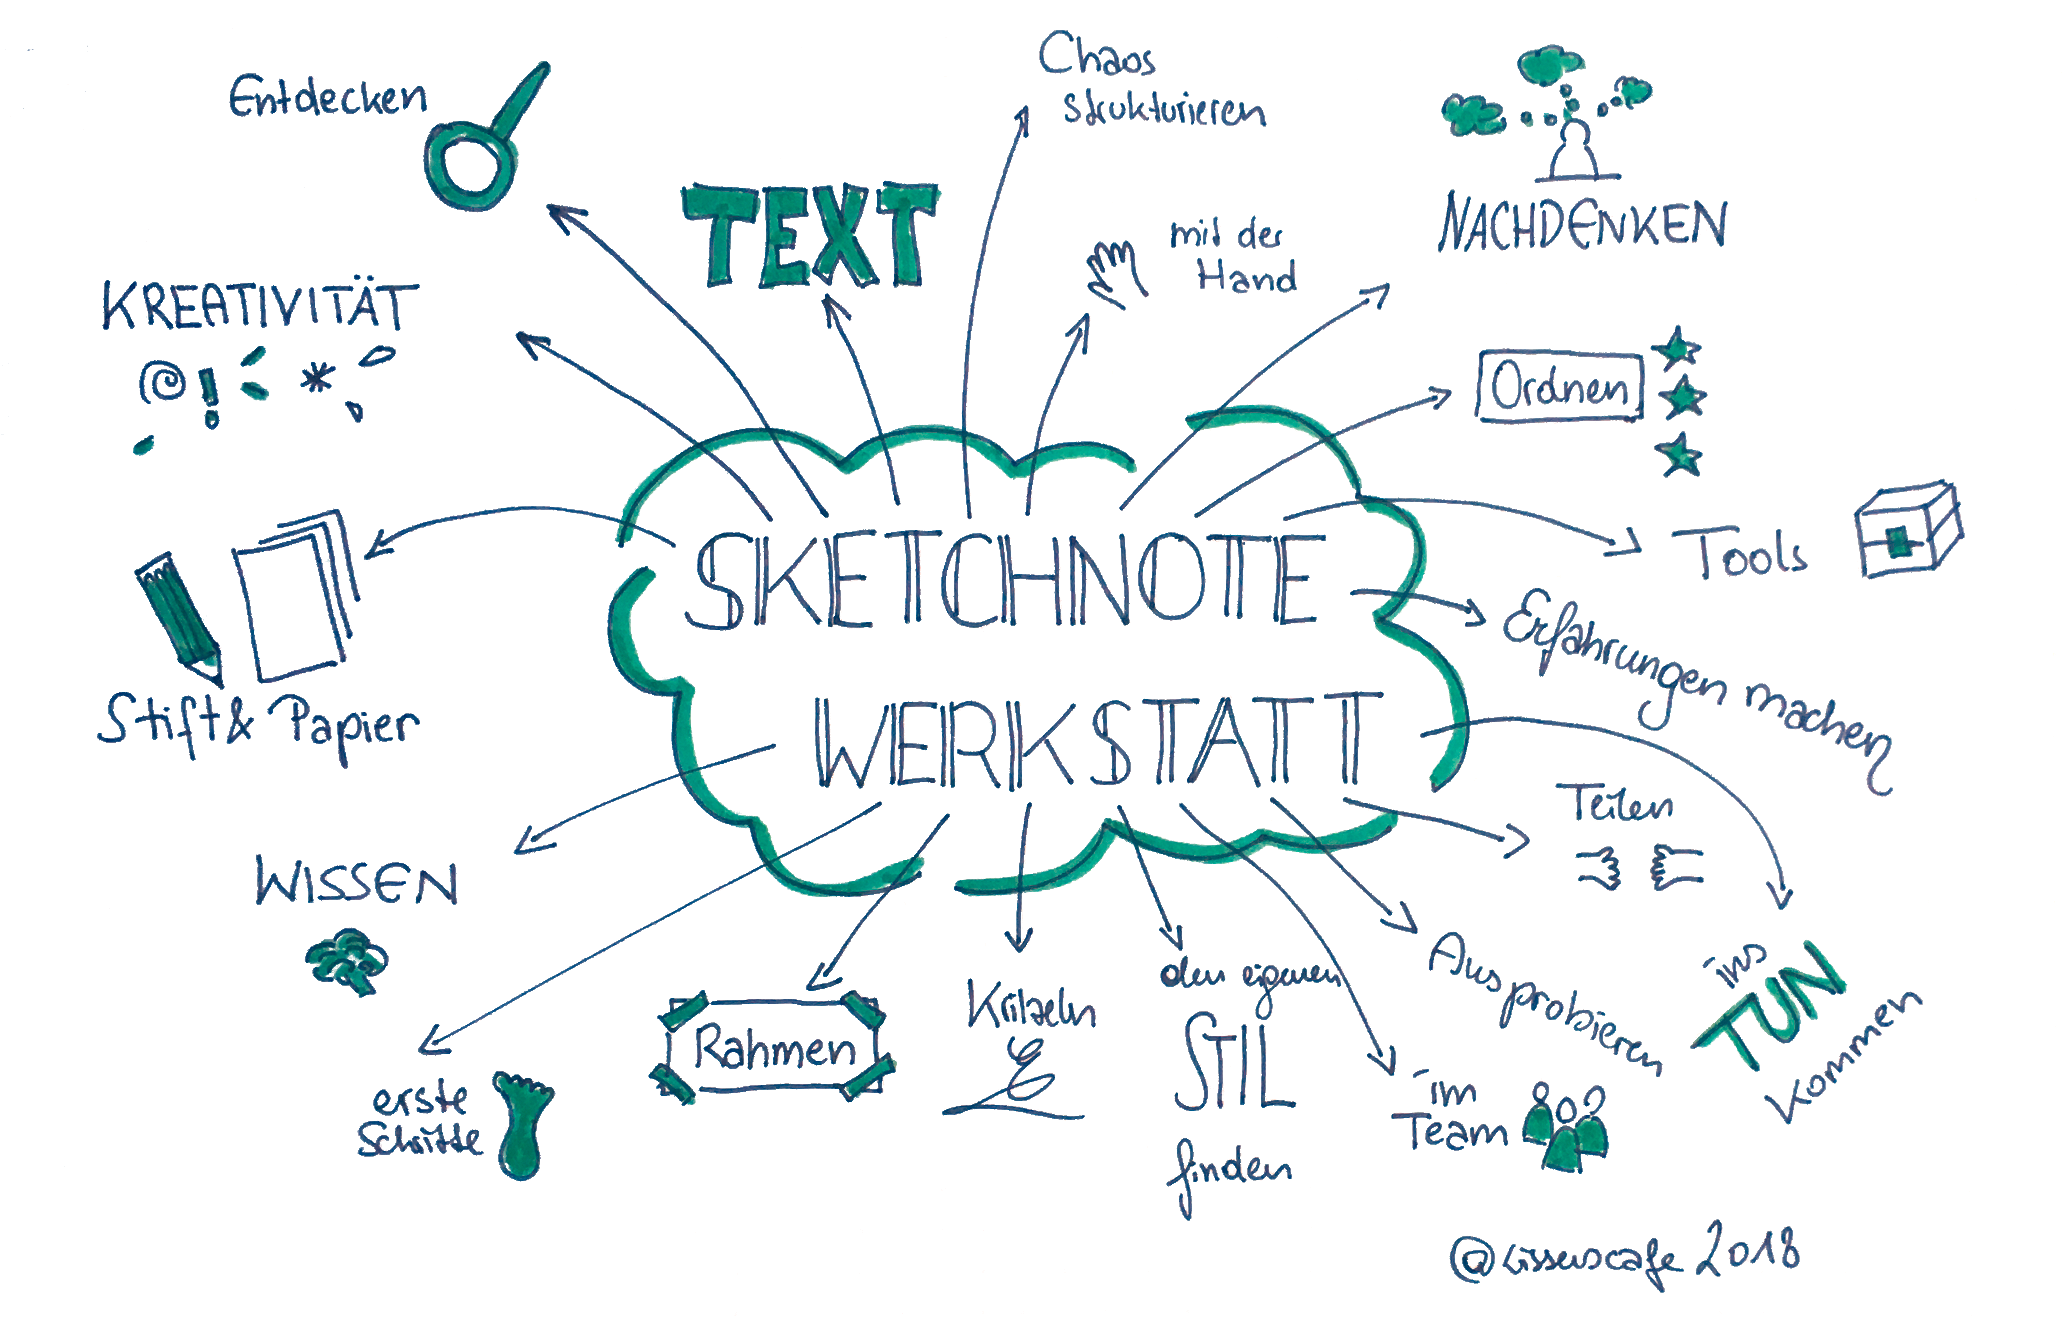 Entdecken
Chaos
strukturieren
TEXT
mit der
Hand
NACHDENKEN
KREATIVITÄT
Ordnen
Stift & Papier
Tools
Erfahrungen machen
SKETCHNOTE
WERKSTATT
Teilen
WISSEN
Ausprobieren
ins
TUN
kommen
erste
Schritte
Rahmen
Kritzeln
den eigenen
STIL
finden
im
Team
@wissenscafe 2018